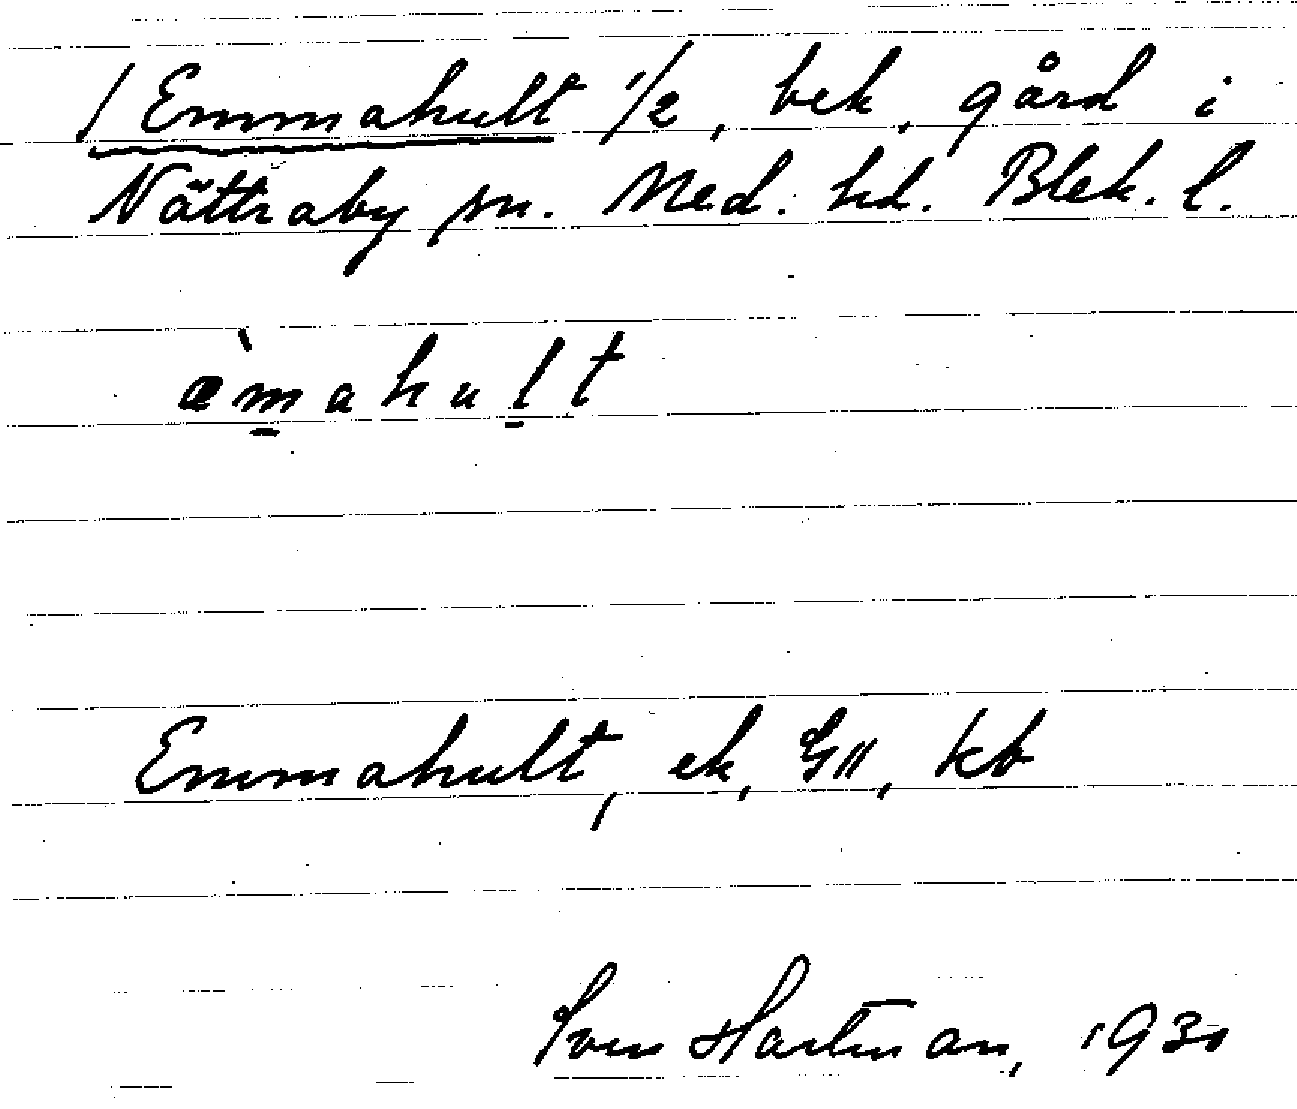 / Emmahult 1/2, bek. gård i
Nättraby sn. Med. hd. Blek. l.
æ̀m̲ahul̲t
Emmahult, ek, GII, kb
Sven Hartman, 193